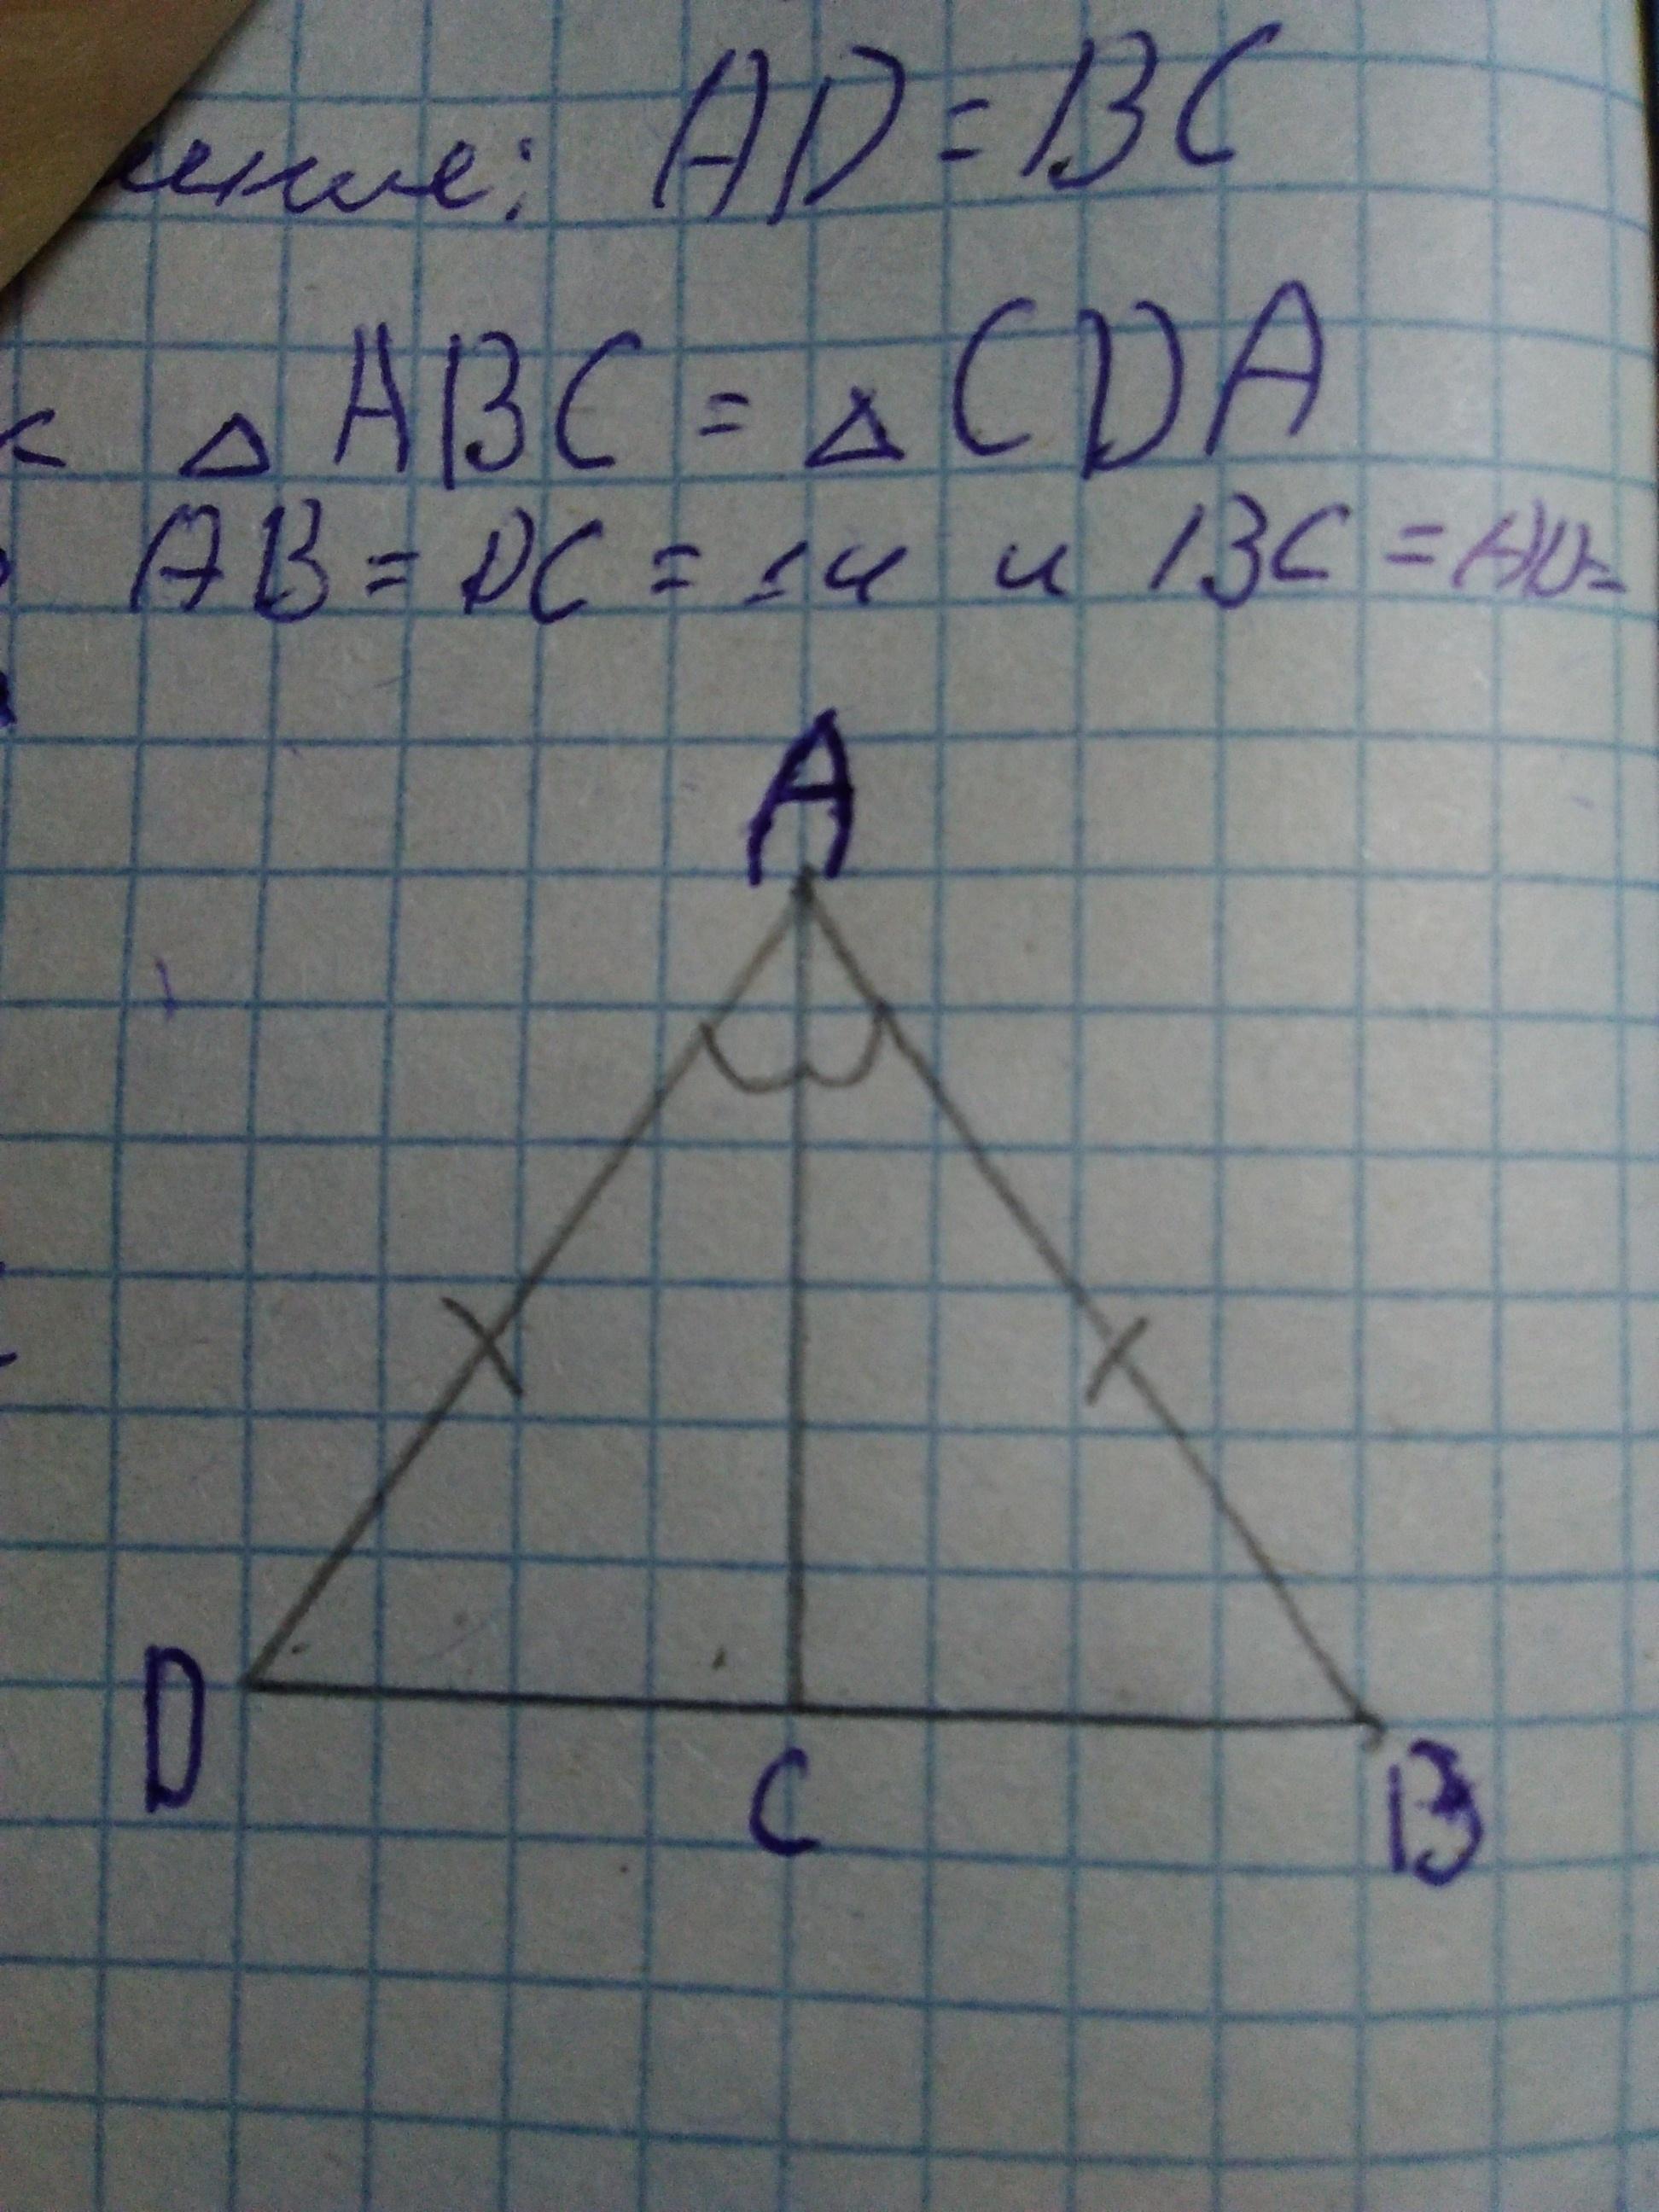 AD = BC
△ ABC = △ CDA
AB = DC = 14 и BC = AD =
A
D
C
B